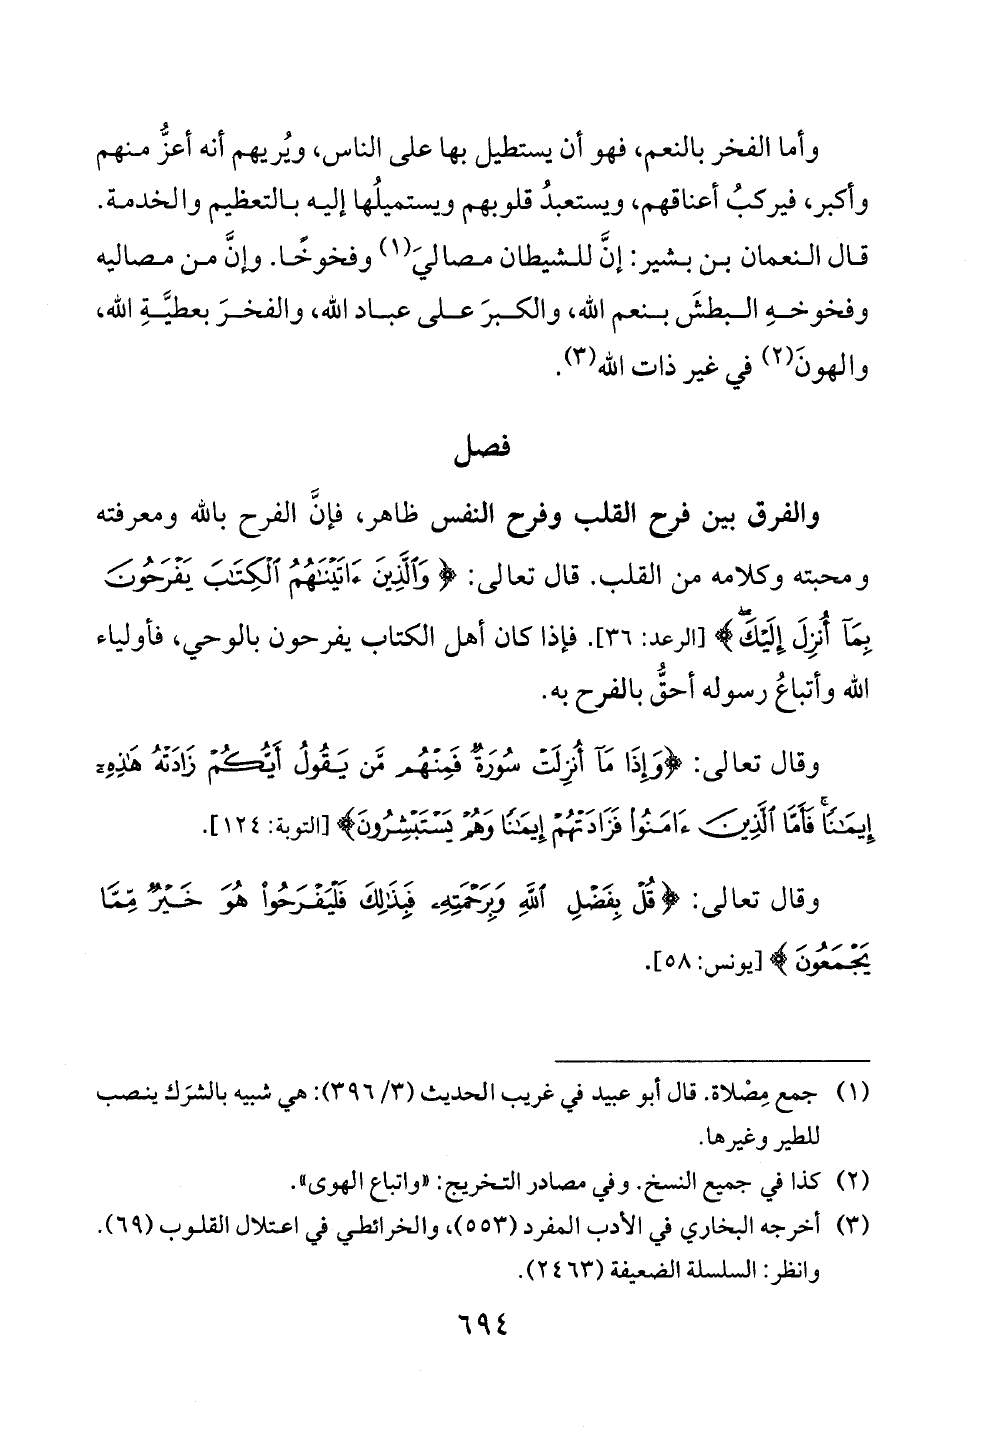 وأما الفخر بالنعم، فهو أن يستطيل بها على الناس، ويُريهم أنه أعزُّ منهم
وأكبر، فيركبُ أعناقهم، ويستعبدُ قلوبهم ويستميلُها إليه بالتعظيم والخدمة.
قال النعمان بن بشير: إنَّ للشيطان مصاليَ(١) وفخوخًا. وإنَّ من مصاليه
وفخوخهِ البطشَ بنعم الله، والكبرَ على عباد الله، والفخرَ بعطيَّةِ الله،
والهونَ(٢) في غير ذات الله(٣).
فصل
والفرق بين فرح القلب وفرح النفس ظاهر، فإنَّ الفرح بالله ومعرفته
ومحبته وكلامه من القلب. قال تعالى: ﴿وَٱلَّذِينَ ءَاتَيْنَٰهُمُ ٱلْكِتَٰبَ يَفْرَحُونَ
بِمَآ أُنزِلَ إِلَيْكَۖ﴾ [الرعد: ٣٦]. فإذا كان أهل الكتاب يفرحون بالوحي، فأولياء
الله وأتباعُ رسوله أحقُّ بالفرح به.
وقال تعالى: ﴿وَإِذَا مَآ أُنزِلَتْ سُورَةٌ فَمِنْهُم مَّن يَقُولُ أَيُّكُمْ زَادَتْهُ هَٰذِهِۦٓ
إِيمَٰنًاۚ فَأَمَّا ٱلَّذِينَ ءَامَنُوا۟ فَزَادَتْهُمْ إِيمَٰنًا وَهُمْ يَسْتَبْشِرُونَ﴾ [التوبة: ١٢٤].
وقال تعالى: ﴿قُلْ بِفَضْلِ ٱللَّهِ وَبِرَحْمَتِهِۦ فَبِذَٰلِكَ فَلْيَفْرَحُوا۟ هُوَ خَيْرٌ مِّمَّا
يَجْمَعُونَ﴾ [يونس: ٥٨].
(١) جمع مِصْلاة. قال أبو عبيد في غريب الحديث (٣/ ٣٩٦): هي شبيه بالشرَك ينصب
للطير وغيرها.
(٢) كذا في جميع النسخ. وفي مصادر التخريج: «واتباع الهوى».
(٣) أخرجه البخاري في الأدب المفرد (٥٥٣)، والخرائطي في اعتلال القلوب (٦٩).
وانظر: السلسلة الضعيفة (٢٤٦٣).
٦٩٤